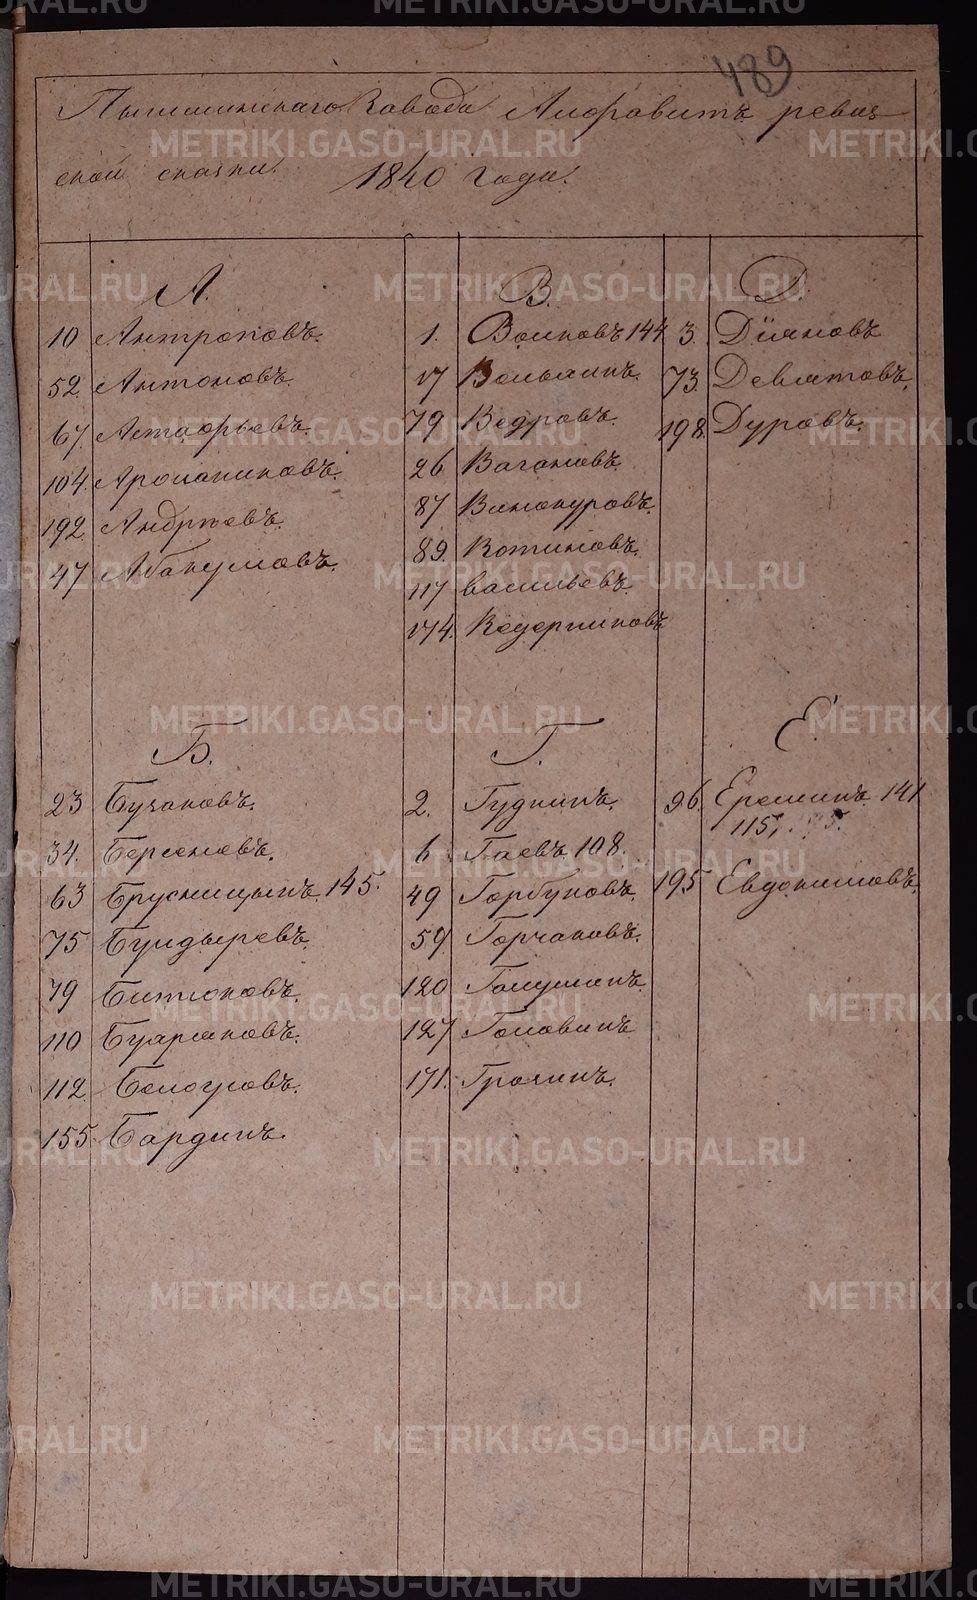 489
Пышминскаго Завода Алфавитъ ревиз
ской сказки 1840 года.
А.
10 Антроповъ.
52. Антоновъ.
67. Астафьевъ.
104. Аромашковъ.
192. Андрѣевъ.
47 Абакумовъ.
Б.
23 Бузаковъ.
34. Берсеневъ.
63 Брусницынъ. 145.
75 Булдыревъ.
79 Битюковъ.
110 Буармаковъ.
112. Белоусовъ.
155. Бардинъ.
В.
1. Волковъ 144
17 Волынинъ.
79 Ведровъ.
26 Вагановъ.
87 Винокуровъ.
89. Вотиновъ.
117 васильевъ.
174. Ведерниковъ
Г.
2. Гудкинъ.
6 Гаевъ 108.
49 Горбуновъ.
59. Горчаковъ.
120 Галушинъ.
127 Головинъ
171. Грозинъ.
Д.
3. Діяновъ
73. Девятовъ.
198. Дуровъ.
Е.
96. Еремин 141
115,
195 Евдокимовъ.
METRIKI.GASO-URAL.RU